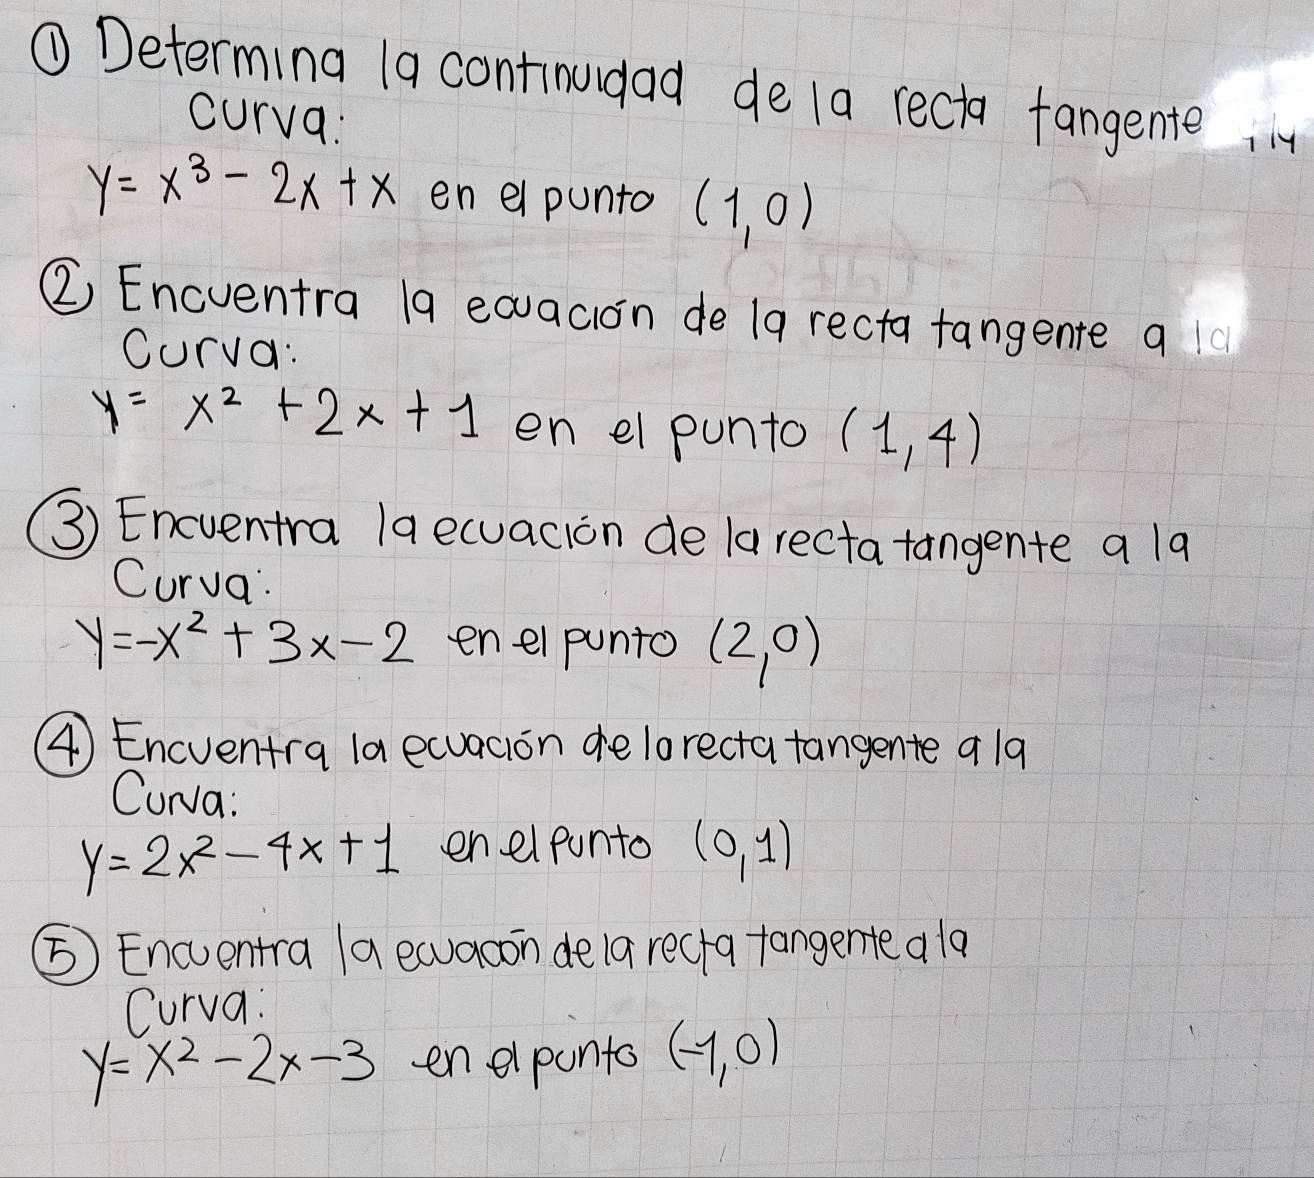 ① Determina la continuidad de la recta tangente
curva:
y = x³ - 2x + x en el punto (1,0)
② Encuentra la ecuación de la recta tangente a la
Curva:
y = x² + 2x + 1 en el punto (1,4)
③ Encuentra la ecuación de la recta tangente a la
Curva:
y=-x² + 3x - 2 en el punto (2,0)
④ Encuentra la ecuación de la recta tangente a la
Curva:
y = 2x² - 4x + 1 en el punto (0,1)
⑤ Encuentra la ecuacón de la recta tangente a la
Curva:
y = x² - 2x - 3 en el punto (-1,0)